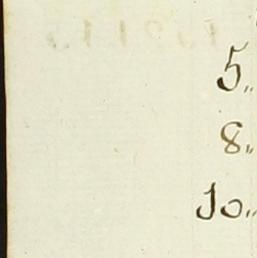 5„
8„
10„